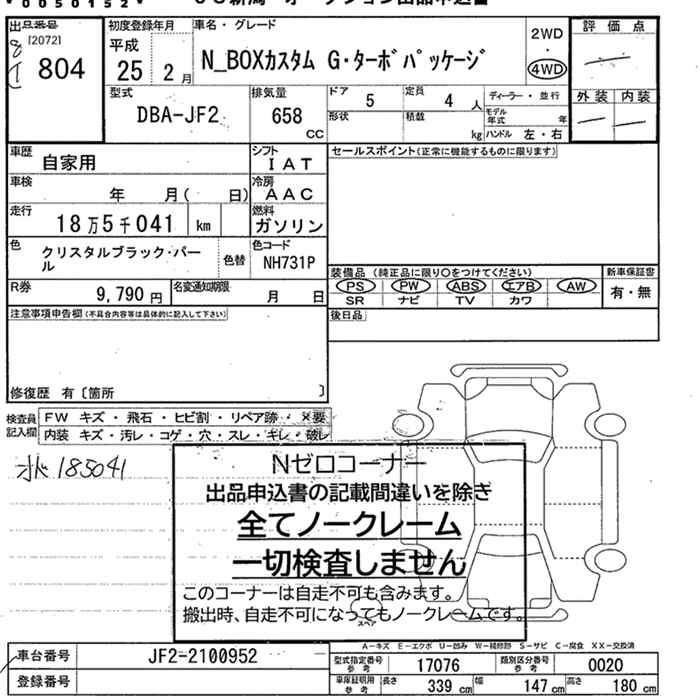 * 0050152 *
出品番号
[2072]
804
初度登録年月
平成
25 2 月
車名・グレード
N_BOXカスタム G・ターボパッケージ
2WD
・
4WD
評 価 点
外 装 内 装
型式
DBA-JF2
排気量
658
CC
ドア 5
定員 4 人
ディーラー・並行
形状
積載 kg
モデル年式 年
ハンドル 左・右
車歴 自家用
シフト I A T
セールスポイント(正常に機能するものに限ります)
車検 年 月( 日)
冷房 A A C
走行 18 万 5 千 041 km
燃料 ガソリン
色 クリスタルブラック・パール
色替
色コード NH731P
装備品(純正品に限り○をつけてください)
新車保証書
PS PW ABS エアB AW
有・無
SR ナビ TV カワ
R券 9,790 円
名変通知期限 月 日
後日品
注意事項申告欄(不具合内容等は具体的に記入して下さい)
修復歴 有〔箇所 〕
検査員記入欄
FW キズ・飛石・ヒビ割・リペア跡・×要
内装 キズ・汚レ・コゲ・穴・スレ・キレ・破レ
185041
Nゼロコーナー
出品申込書の記載間違いを除き
全てノークレーム
一切検査しません
このコーナーは自走不可も含みます。
搬出時、自走不可になってもノークレームです。
スペア
A-キズ E-エクボ U-凹み W-補修跡 S-サビ C-腐食 XX-交換済
車台番号 JF2-2100952
型式指定番号 参考 17076
類別区分番号 参考 0020
登録番号
車庫証明用 参考 長さ 339 cm 幅 147 cm 高さ 180 cm